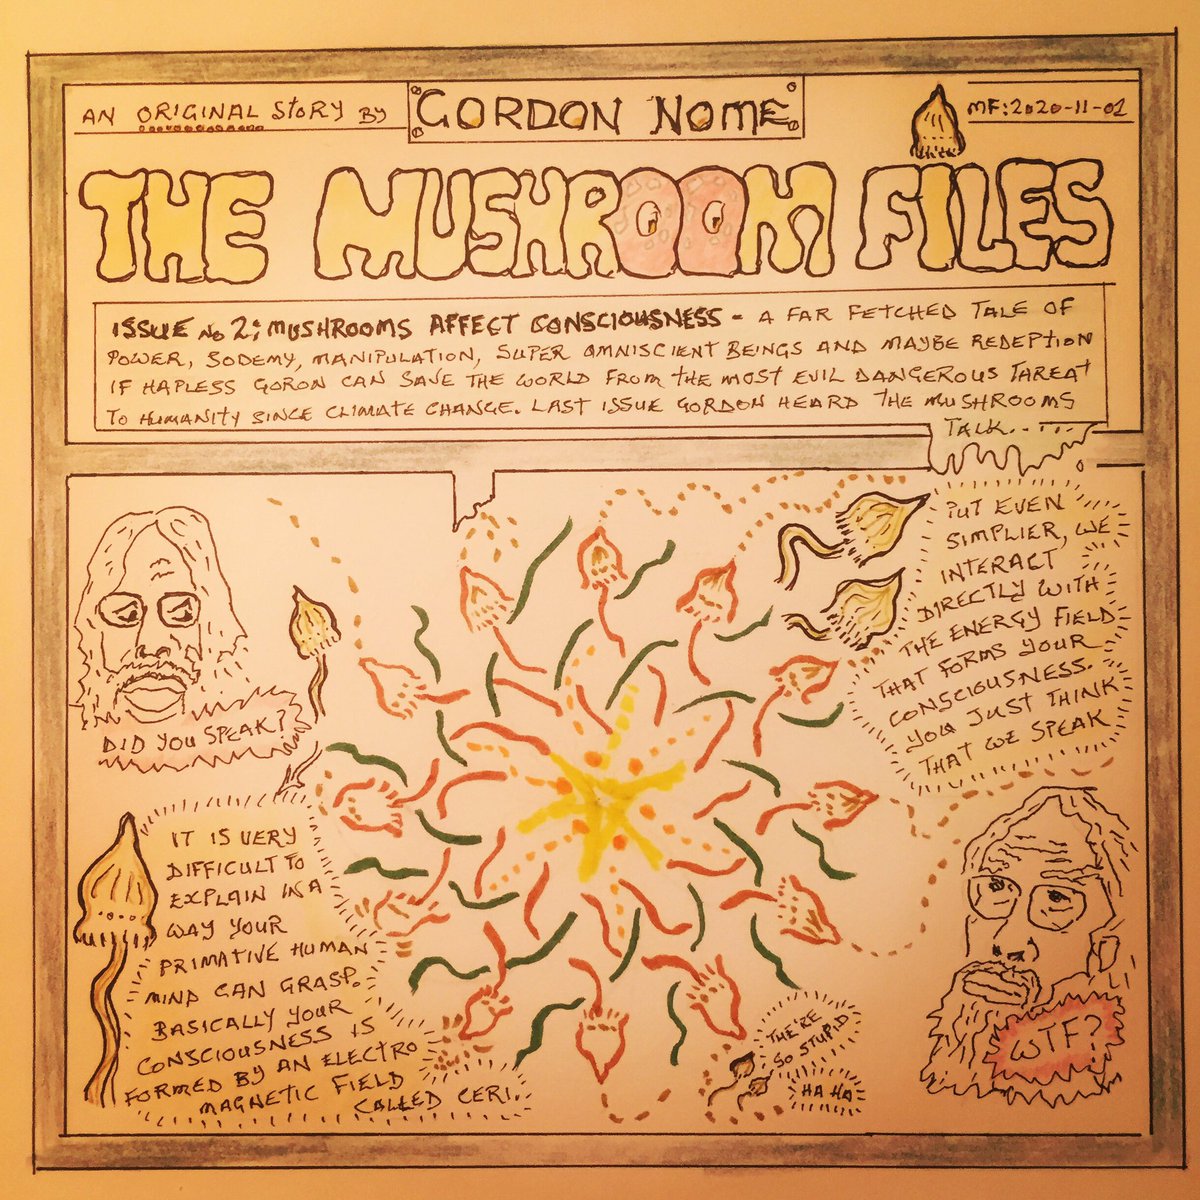 AN ORIGINAL STORY BY
GORDON NOME
MF:2020-11-01
THE MUSHROOM FILES
ISSUE No 2; MUSHROOMS AFFECT CONSCIOUSNESS - A FAR FETCHED TALE OF
POWER, SODEMY, MANIPULATION, SUPER OMNISCIENT BEINGS AND MAYBE REDEPTION
IF HAPLESS GORON CAN SAVE THE WORLD FROM THE MOST EVIL DANGEROUS THREAT
TO HUMANITY SINCE CLIMATE CHANGE. LAST ISSUE GORDON HEARD THE MUSHROOMS
TALK......
DID YOU SPEAK?
IT IS VERY
DIFFICULT TO
EXPLAIN IN A
WAY YOUR
PRIMATIVE HUMAN
MIND CAN GRASP.
BASICALLY YOUR
CONSCIOUSNESS IS
FORMED BY AN ELECTRO
MAGNETIC FIELD
CALLED CERI.
PUT EVEN
SIMPLIER, WE
INTERACT
DIRECTLY WITH
THE ENERGY FIELD
THAT FORMS YOUR
CONSCIOUSNESS.
YOU JUST THINK
THAT WE SPEAK
WTF?
THE'RE
SO STUPID
HA HA